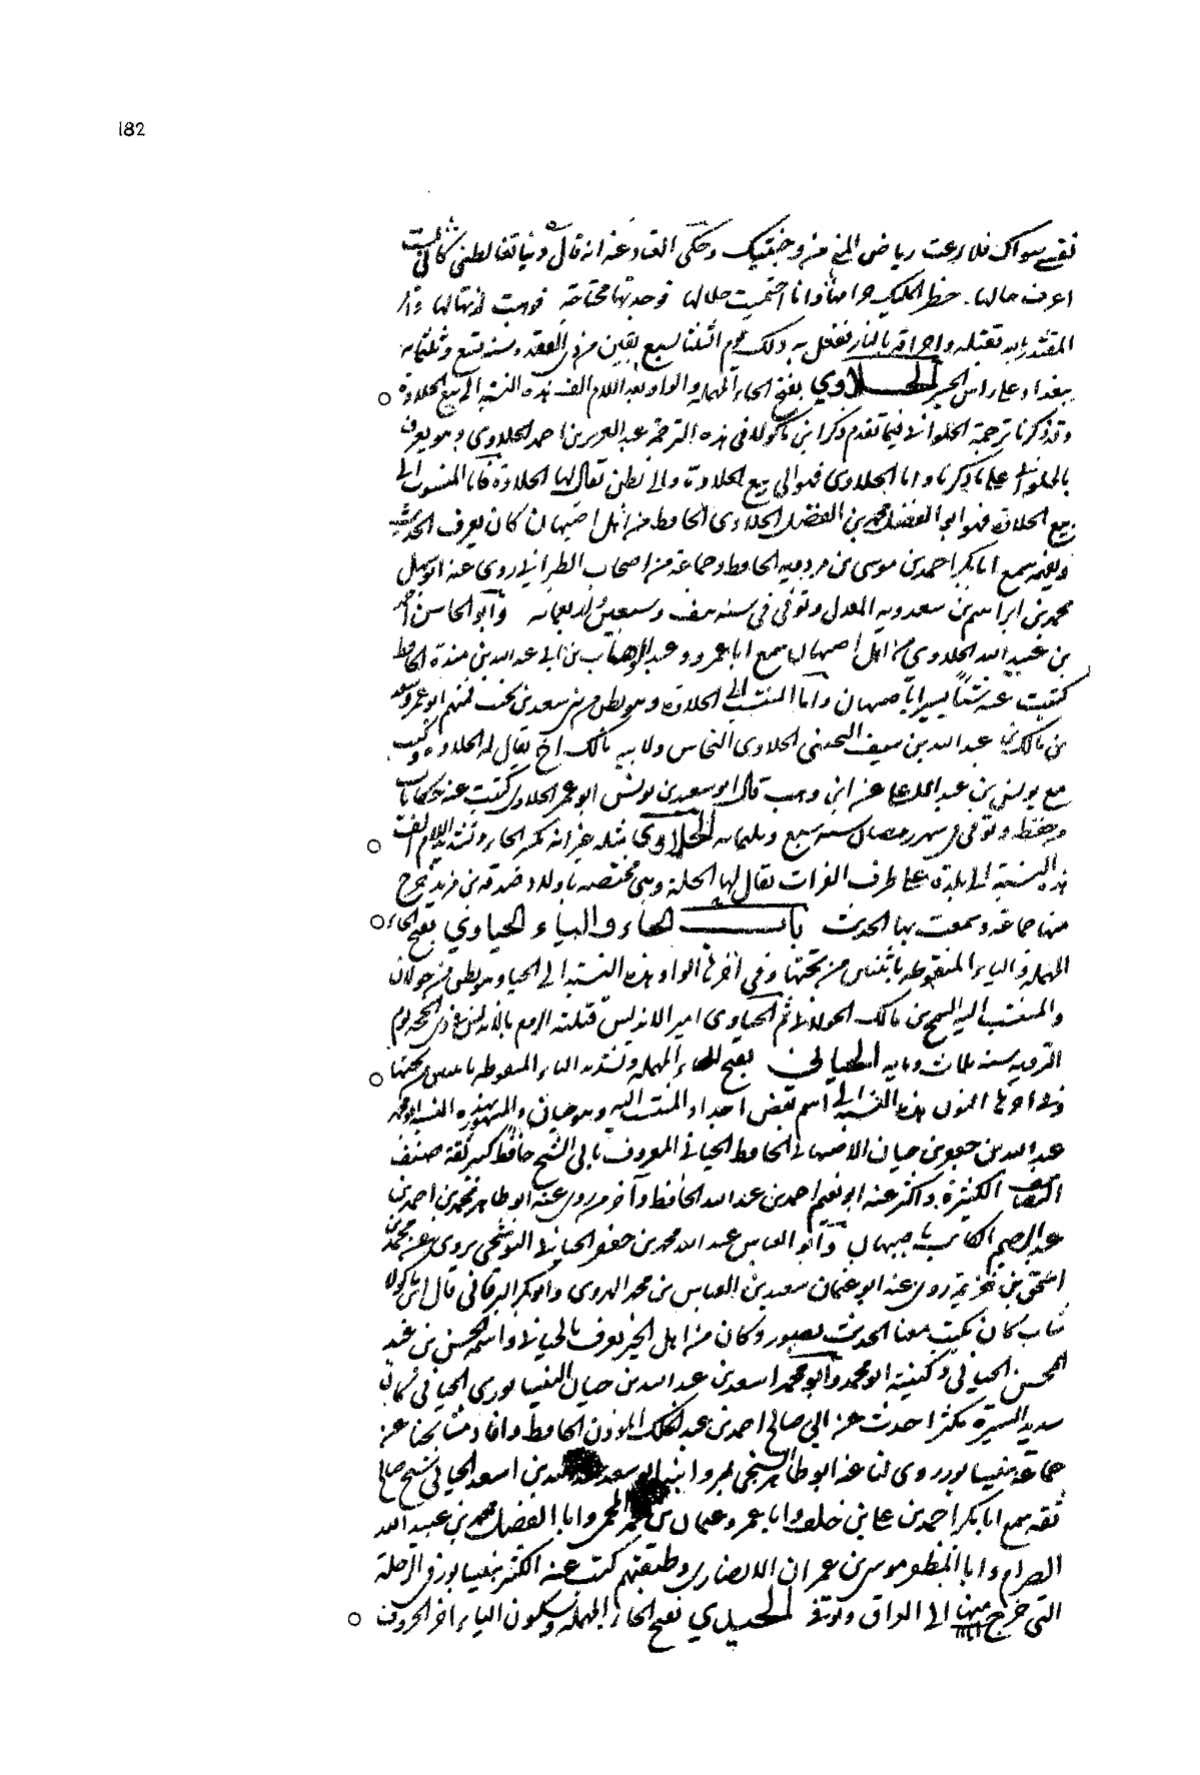 182
نفسي سواك فلا رعت رياض المنى منه وجنتيك وحكى القناد عنه انه قال دنيا تغالطني كاني لست
اعرف حالها حظر المليك حرامها وانا احتميت حلالها فوجدتها محتاجة فوهبت لذتها لها وامر
المقتدر بالله بقتله واحراقه بالنار ففعل به ذلك يوم الثلثا لسبع بقين من ذي القعده سنه تسع وثلثمايه
ببغداد على راس الجسر الحلاوي بفتح الحاء المهملة والواو بعد اللام الف هذه النسبة الى بيع الحلاوة
وقد ذكرنا ترجمة الحلواني فيما تقدم ذكر ابن ماكولا في هذه الترجمة عبد العزيز بن احمد الحلاوي وهو يعرف
بالحلواني على ما ذكرنا واما الحلاوي فهو الى بيع الحلاوة والى بطن يقال لها الحلاوة فاما المنسوب الى
بيع الحلاوة فهو ابو الفضل محمد بن الفضل الحلاوي الحافظ من اهل اصبهان كان يعرف الحديث
ويفهم سمع ابا بكر احمد بن موسى بن مردويه الحافظ وجماعة من اصحاب الطبراني روى عنه ابو سهل
محمد بن ابراهيم بن سعدويه المعدل وتوفي في سنه نيف وسبعين واربعمايه وابو المحاسن احمد
بن عبيد الله الحلاوي من اهل اصبهان سمع ابا عمرو عبد الوهاب بن ابي عبد الله بن مندة الحافظ
كتبت عنه شيئا يسيرا باصبهان واما المنتسب الى الحلاوة وهو بطن من سعد بن تجيب فمنهم ابو عمرو سعد
بن مالك بن عبد الله بن سيف التجيبي الحلاوي النحاس ولابيه مالك اخ يقال له الحلاوة وكتب
مع يونس بن عبد الاعلى عن ابن وهب قال ابو سعيد بن يونس ابو عمر الحلاوي كتبت عنه حكايات
وحفظه وتوفي في شهر رمضان سنه سبع وثلثمايه الحلاوي مثله غير انه بكسر الحاء وتشديد اللام الف
هذه النسبة الى بلدة على طرف الفرات يقال لها الحلة وهي مختصه باولاد صدقه بن مزيد خرج
منها جماعة وسمعت بها الحديث باب الحاء والياء الحياوي بفتح الحاء
المهملة والياء المنقوطه باثنتين من تحتها وفي آخرها الواو هذه النسبة الى الحيا وهو بطن من خولان
والمنتسب اليه السمح بن مالك الخولاني ثم الحياوي امير الاندلس قتلته الروم بالاندلس في ذي الحجه يوم
الترويه سنه ثلاث ومايه الحياني بفتح الحاء المهملة وتشديد الياء المنقوطه باثنتين من تحتها
وفي اخرها النون هذه النسبة الى اسم بعض اجداد المنتسب اليه وهو حيان والمشهور بهذه النسبه ابو محمد
عبد الله بن محمد بن جعفر بن حيان الاصبهاني الحافظ الحياني المعروف بابي الشيخ حافظ كبير ثقة صنف
التصانيف الكثيرة واكثر عنه ابو نعيم احمد بن عبد الله الحافظ وآخر من روى عنه ابو طاهر محمد بن احمد بن
عبد الرحيم الكاتب باصبهان وابو العباس عبد الله محمد بن جعفر الحياني البوشنجي يروي عن محمد بن
اسحق بن خزيمة روى عنه ابو عثمان سعيد بن العباس بن محمد الهروي وابو بكر البرقاني قال ابن ماكولا
شاب كان يكتب معنا الحديث بصور وكان من اهل الخير يعرف بالحياني واسمه محسن بن عبد
المحسن الحياني وكنيته ابو محمد وابو محمد اسعد بن عبد الله بن حيان النيسابوري الحياني كان
سديد السيرة مكثرا حدث عن ابي صالح احمد بن عبد الملك المؤذن الحافظ وافاد مشايخنا عن
جماعة بنيسابور روى لنا عنه ابو طاهر السنجي بمرو ابنه ابو سعد بن اسعد الحياني شيخ صالح
ثقه سمع ابا بكر احمد بن علي بن خلف وابا عمرو عثمان بن محمد المحمي وابا الفضل محمد بن عبيد الله
الصرام وابا المظفر موسى بن عمران الانصاري وطبقتهم كتبت عنه الكثير بنيسابور في الرحلة
التي خرج منها الى العراق وتوفي الحيدي بفتح الحاء المهملة وسكون الياء اخر الحروف